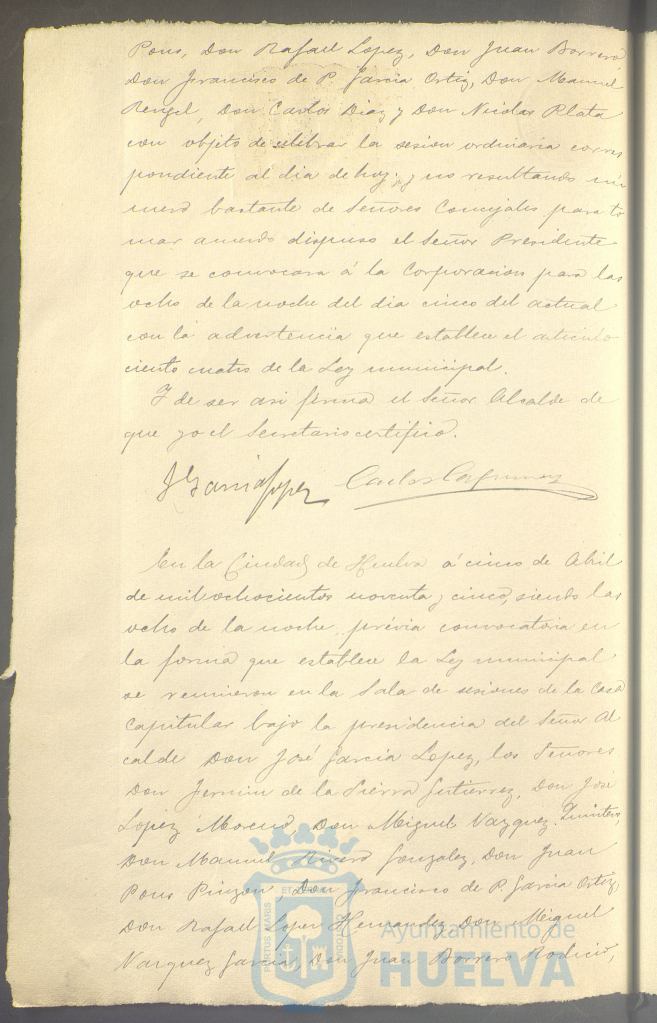 Pons, Don Rafael Lopez, Don Juan Borrero
Don Francisco de P. Garcia Ortiz, Don Manuel
Rengel, Don Carlos Diaz y Don Nicolas Plata
con objeto de celebrar la sesion ordinaria corres
pondiente al dia de hoy; y no resultando nú
mero bastante de Señores Concejales para to
mar acuerdo dispuso el Señor Presidente
que se convocara á la Corporacion para las
ocho de la noche del dia cinco del actual
con la advertencia que establece el articulo
ciento cuatro de la Ley municipal.
Y de ser asi firma el Señor Alcalde de
que yo el Secretario certifico.
J Garcia Lopez Carlos
En la Ciudad de Huelva á cinco de Abril
de mil ochocientos noventa y cinco, siendo las
ocho de la noche prévia convocatoria en
la forma que establece la Ley municipal
se reunieron en la Sala de sesiones de la Casa
Capitular bajo la presidencia del Señor Al
calde Don José Garcia Lopez, los Señores
Don Fermin de la Sierra Gutierrez, Don José
Lopez Moreno, Don Miguel Vazquez Quintero,
Don Manuel Rivero Gonzalez, Don Juan
Pons Pinzon, Don Francisco de P. Garcia Ortiz,
Don Rafael Lopez Hernandez, Don Miguel
Vazquez Garcia, Don Juan Borrero Rodicio,
Ayuntamiento de
HUELVA